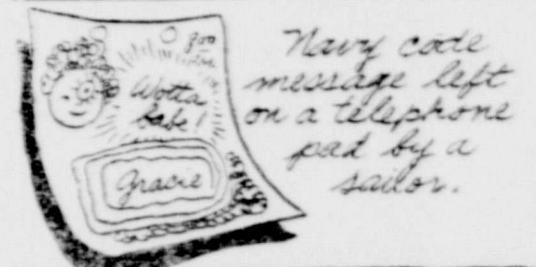 Wotta
babe!
Gracie
Navy code
message left
on a telephone
pad by a
sailor.